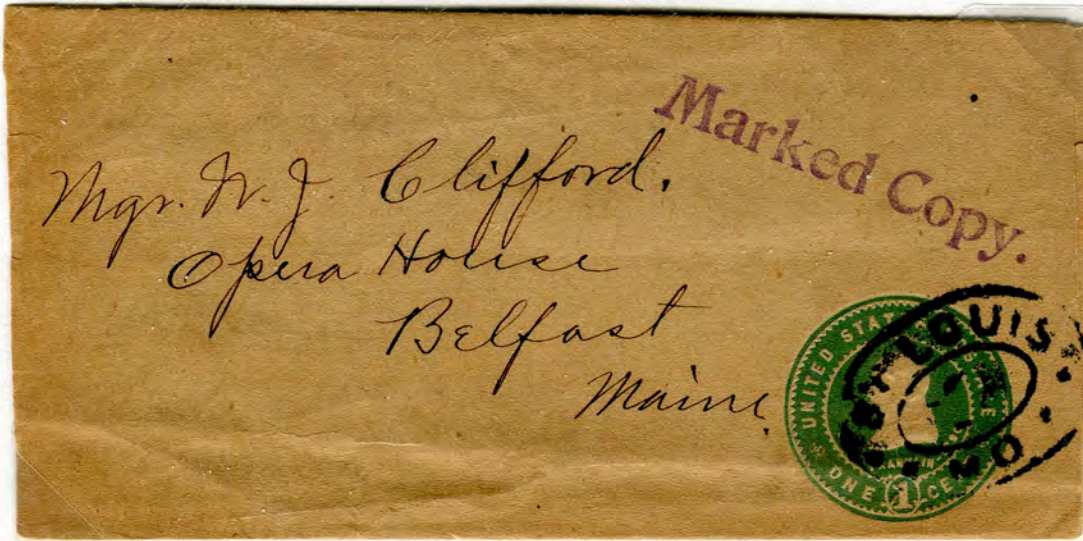 Marked Copy.
Mgr. W. J. Clifford.
Opera House
Belfast
Maine
UNITED STATES
ONE 1 CE
ST. LOUIS
MO.